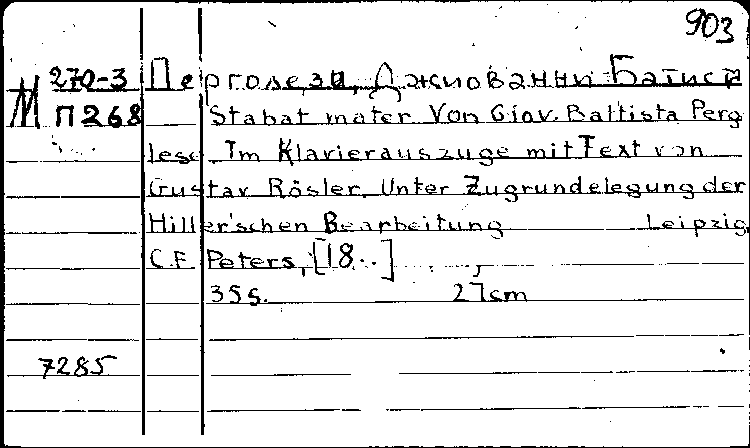 903
M 270-3 Перголези, Джиованни Батиси
П268 Stabat mater Von Giov. Battista Perg
lesc. Im Klavierauszuge mit Text von
Gustav Rösler. Unter Zugrundelegung der
Hiller'schen Bearbeitung Leipzig,
C.F. Peters, [18..]
35s. 27cm
7285